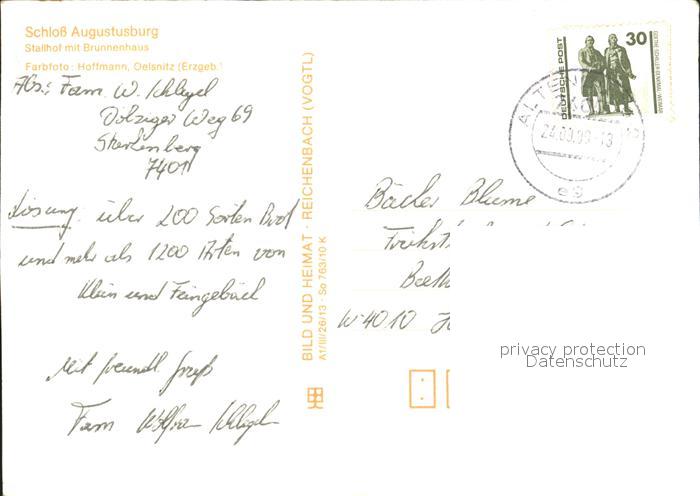 Schloß Augustusburg
Stallhof mit Brunnenhaus
Farbfoto: Hoffmann, Oelsnitz (Erzgeb.)
Abs.: Fam. W. Schlegel
Dölziger Weg 69
Starkenberg
7401
Lösung: über 200 Sorten Brot
und mehr als 1200 Arten von
Klein und Feingebäck
Mit freundl. Gruß
Fam Wolfram Schlegel
BILD UND HEIMAT · REICHENBACH (VOGTL)
A1/III/26/13 · So 763/10 K
DEUTSCHE POST
30
GOETHE-SCHILLER-DENKMAL · WEIMAR
ALTEN
7400
24.09.90-13
Bäcker Blume
W-4010
privacy protection
Datenschutz